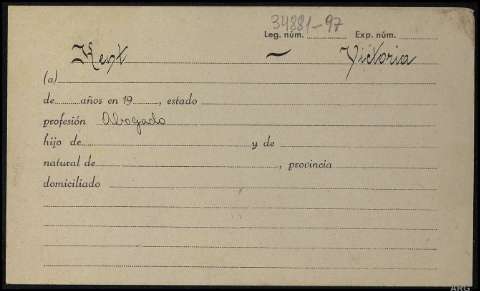 34881-97
Leg. núm. Exp. núm.
Kent - Victoria
(a)
de años en 19 , estado
profesión Abogado
hijo de y de
natural de , provincia
domiciliado
ARG